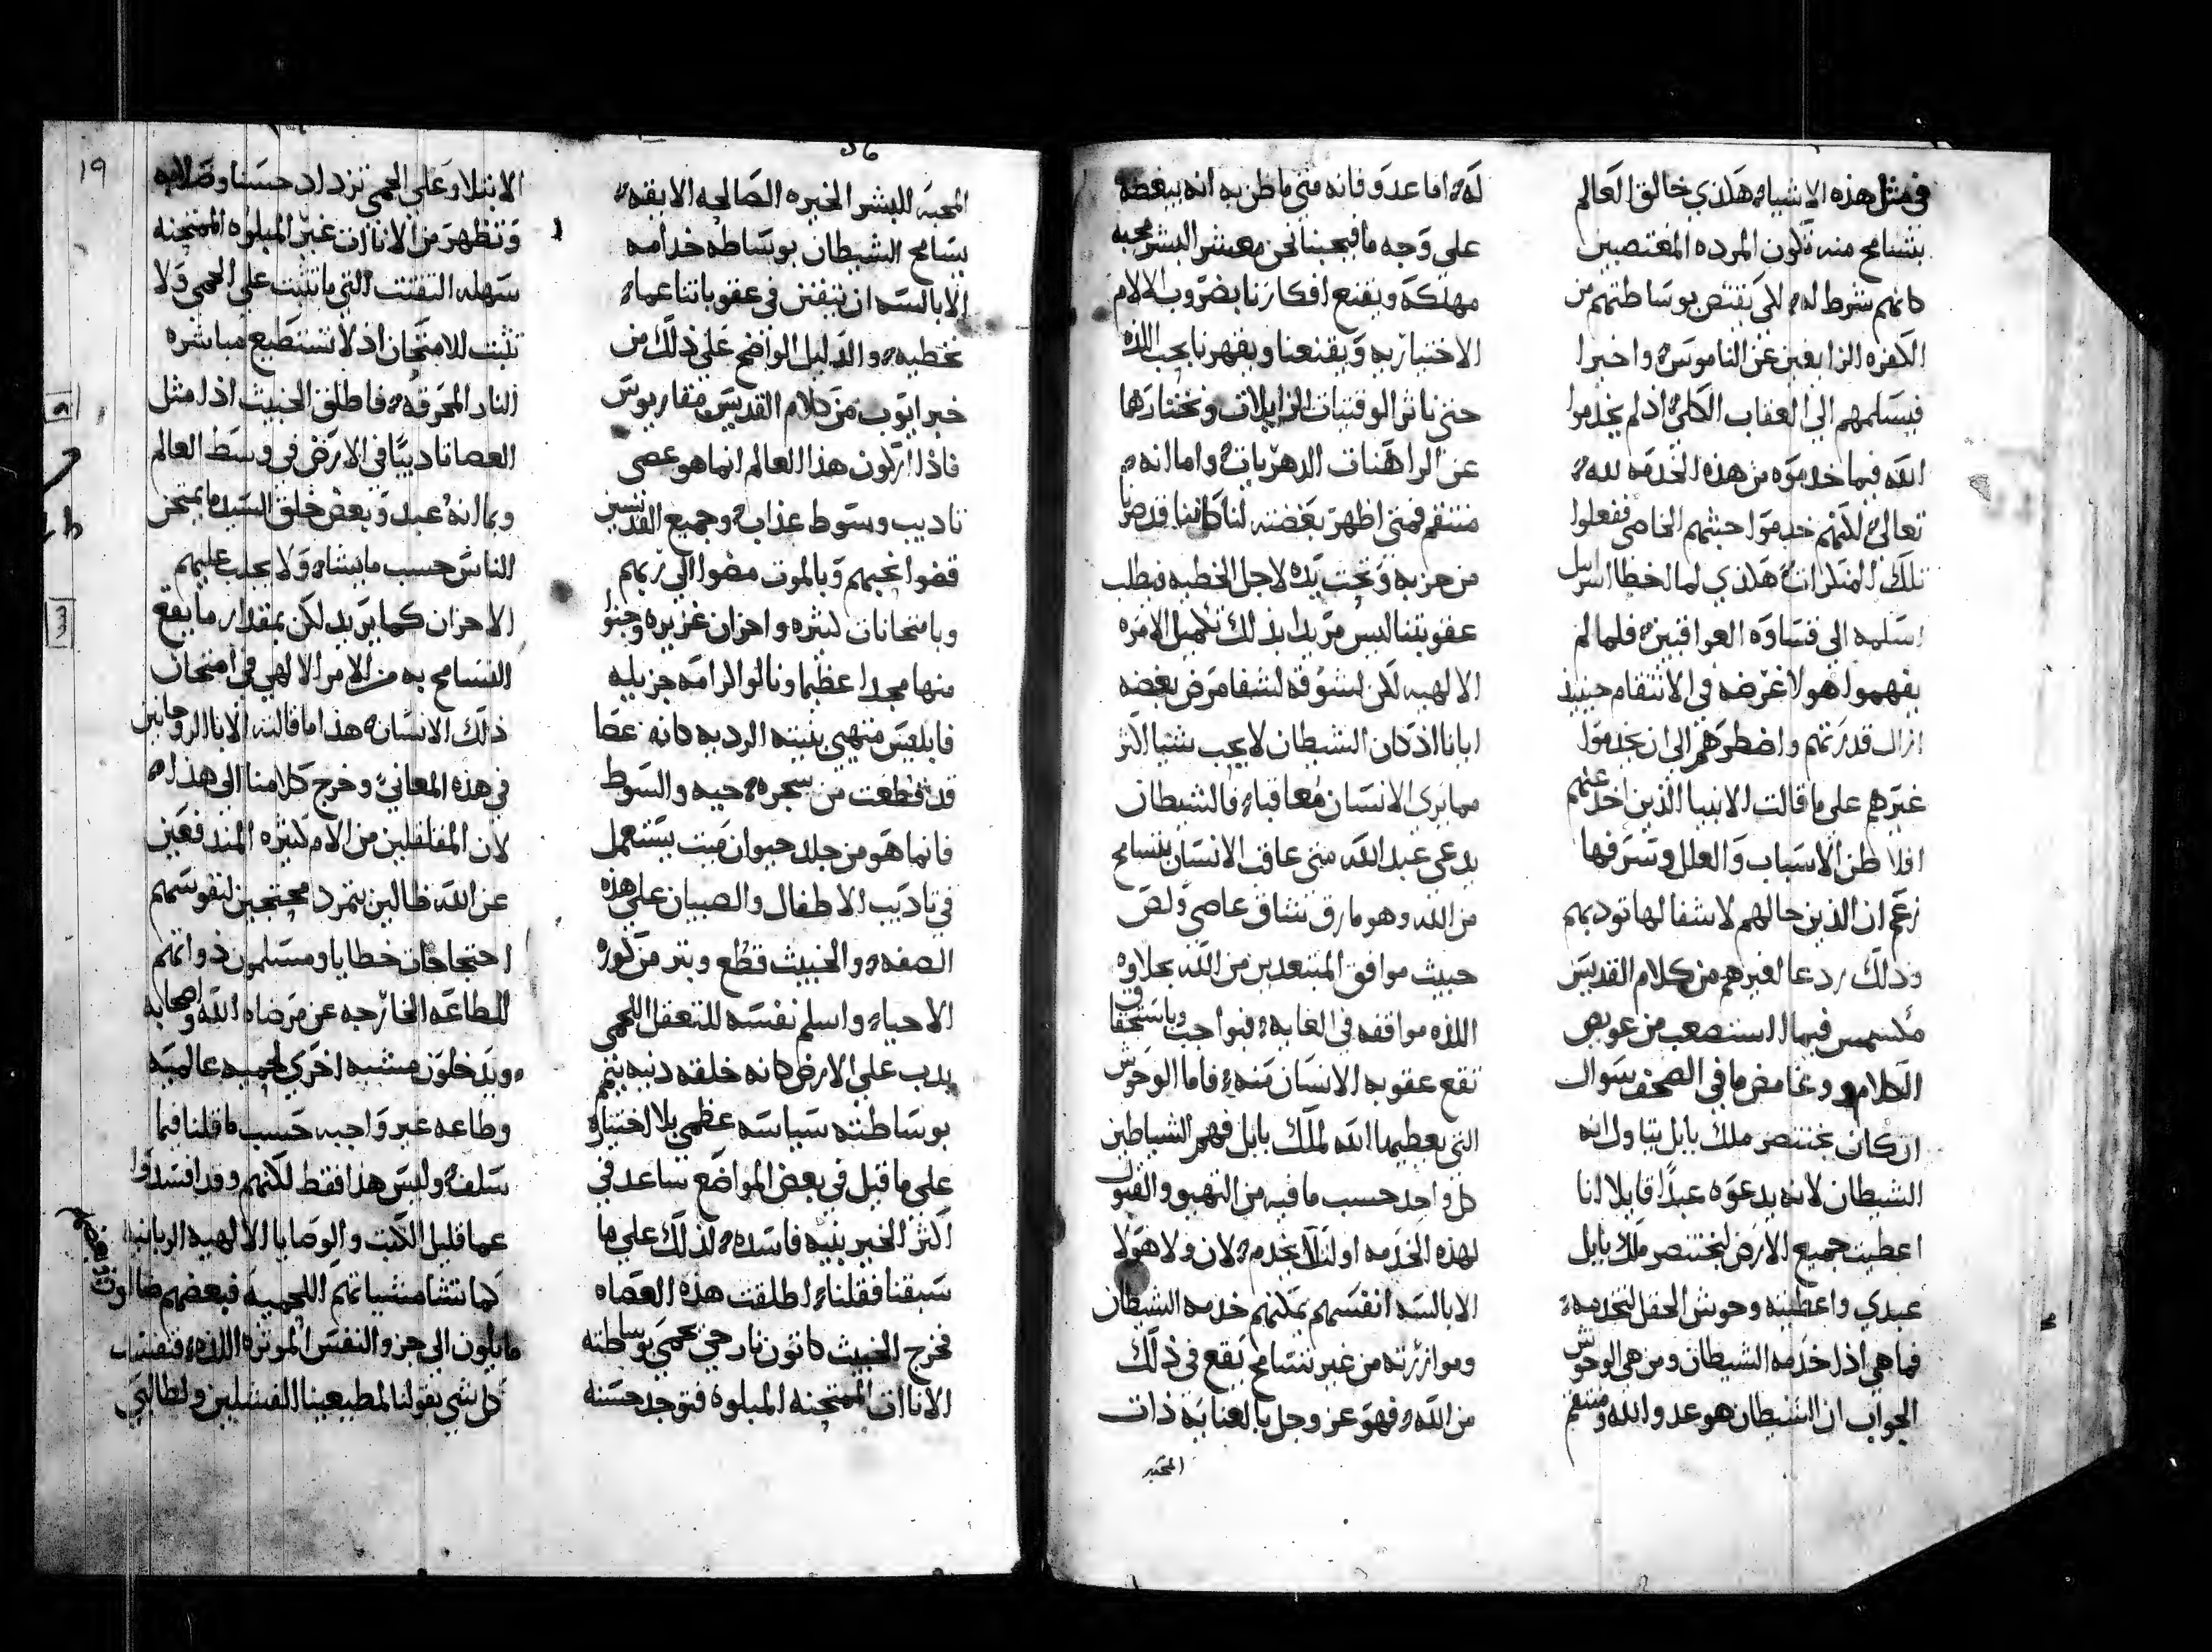 في مثل هذه الاشياء هكذي خالق العالم
يتسامح منه تكون المرده المغتصبين
كانهم شرط له لكي يقتص بوساطتهم من
الكفره الزايغين عن الناموس واخيرا
فيسلمهم الي العقاب الكلي اذ لم يخدموا
الله فيما خدموه من هذه الخدمه لله
تعالي لكنهم خدموا خبثهم الخاصي ففعلوا
تلك المنكرات هكذي لما اخطا اسراييل
اسلمه الي قساوه العراقيين فلما لم
يفهموا هولا غرضه في الانتقام حينيذ
ازال قدرتهم واضطرهم الي ان يخدموا
غيرهم علي ما قالت الانبيا الذين اخذ عنهم
افلاطن الاسباب والعلل وسرقها
زعم ان الذين حالهم لا شفا لها توديهم
وذلك ردعا لغيرهم من كلام القديس
مكسمس فيما استصعب من عويص
الكلام وغامض ما في الصحف سوال
ان كان بختنصر ملك بابل يتاول انه
الشيطان لانه يدعوه عبدا قايلا انا
اعطيت جميع الارض لبختنصر ملك بابل
عبدي واعطيته وحوش الحقل لتخدمه
فما هي اذا خدمه الشيطان ومن هي الوحوش
الجواب ان الشيطان هو عدو الله ومنتقم
له اما عدو فانه متي ما ظن به انه يبغضه
علي وجه ما فيحبنا نحن معشر البشر محبه
مهلكه ويقنع افكارنا بضروب الالام
الاختياريه ويقنعنا ويقهرنا بحب اللذه
حتي ناثر الوقتيات الزايلات ونختارها
عن الراهنات الدهريات واما انه
منتقم فمتي اظهر بغضته لنا كاننا قد صرنا
من حزبه وتحت يده لاجل الخطيه فيطلب
عقوبتنا ليس مريدا بذلك تكميل الاوامره
الالهيه لكن لشوقه لشفا مرض بغضه
ايانا اذ كان الشيطان لا يحب شيا اكثر
مما يري الانسان معاقبا فالشيطان
يدعي عبد الله متي عاقب الانسان بتسامح
من الله وهو مارق شاق عاصي ولص
خبيث موافق المبتعدين من الله بحلاوه
اللذه موافقه في الغايه فبواجب وباستحقاق
تقع عقوبه الانسان منه فاما الوحوش
التي يعطيها الله لملك بابل فهم الشياطين
كل واحد حسب ما فيه من التهيو والقبول
لهذه الخدمه او لتلك يخدم لان ولا هولا
الابالسه انفسهم يمكنهم خدمه الشيطان
وموازرته من غير تسامح يقع في ذلك
من الله فهو عز وجل بالعنايه ذات
المحبه
36
المحبه للبشر الخيره الصالحه الايقنه
يسامح الشيطان بوساطه خدامه
الابالسه ان يتفنن في عقوباتنا عما
نخطيه والدليل الواضح علي ذلك من
خبر ايوب من كلام القديس مقاريوس
فاذا اركون هذا العالم انما هو عصي
تاديب وسوط عذاب وجميع القديسين
قضوا نحبهم وبالموت مضوا الي ربهم
وبامتحانات كثيره واحزان غزيره وجنوا
منها مجدا عظيما ونالوا كرامه جزيله
فابليس منتهي بنيته الرديه كانه عصا
قد قطعت من شجره حيه والسوط
فانما هو من جلد حيوان ميت يستعمل
في تاديب الاطفال والصبيان علي هذه
الصفه والخبيث قطع وبتر من كوره
الاحياء واسلم نفسه للتعقل اللحمي
يدب علي الارض كانه خلقه دنيه يتم
بوساطته سياسه عظمي بلا اختياره
علي ما قيل في بعض المواضع ساعد في
اكثر الخير بنيه فاسده لذلك علي ما
سبقنا فقلنا اطلقت هذه العصاه
فخرج الخبيث كاتون نار حتي تحمي بوساطته
الاناات الممتحنه المبلوه فتوجد حسنه
١٩
الابتلا وعلي الحمي تزداد حسنا وصلابه
وتظهر من الاناات غير المبلوه الممتحنه
سهله التفتت التي ما تثبت علي الحمي ولا
تثبت للامتحان اذ لا تستطيع مباشره
النار المحرقه فاطلق الخبيث اذا مثل
العصا تاديبا في الارض في وسط العالم
وبما انه عبد وبعض خلق السيد ما يمتحن
الناس حسب ما يشاء ولا يجلب عليهم
الاحزان كما يريد لكن بمقدار ما يقع
التسامح به من الامر الالهي في امتحان
ذلك الانسان هذا ما قالته الابا الروحانيين
في هذه المعاني وخرج كلامنا الي هذا
لان المقلقلين من الام كثيره المندفعين
عن الله ظالين بتمرد محتجين لنفوسهم
احتجاجات خطايا ومسلمون ذواتهم
للطاعه الخارجه عن مرضاه الله واصحابه
ويدخلون مشيه اخري لحميه عالميه
وطاعه غير واجبه حسب ما قلنا فيما
سلف وليس هذا فقط لكنهم وقد افسدوا
عما قليل الكتب والوصايا الالهيه الربانيه
كما تشا مشياتهم اللحميه فبعضهم ضالون
مايلون الي جزو النفس الموثره اللذه
كل شي يقولنا لمطيعينا الفشلين ولطالبي